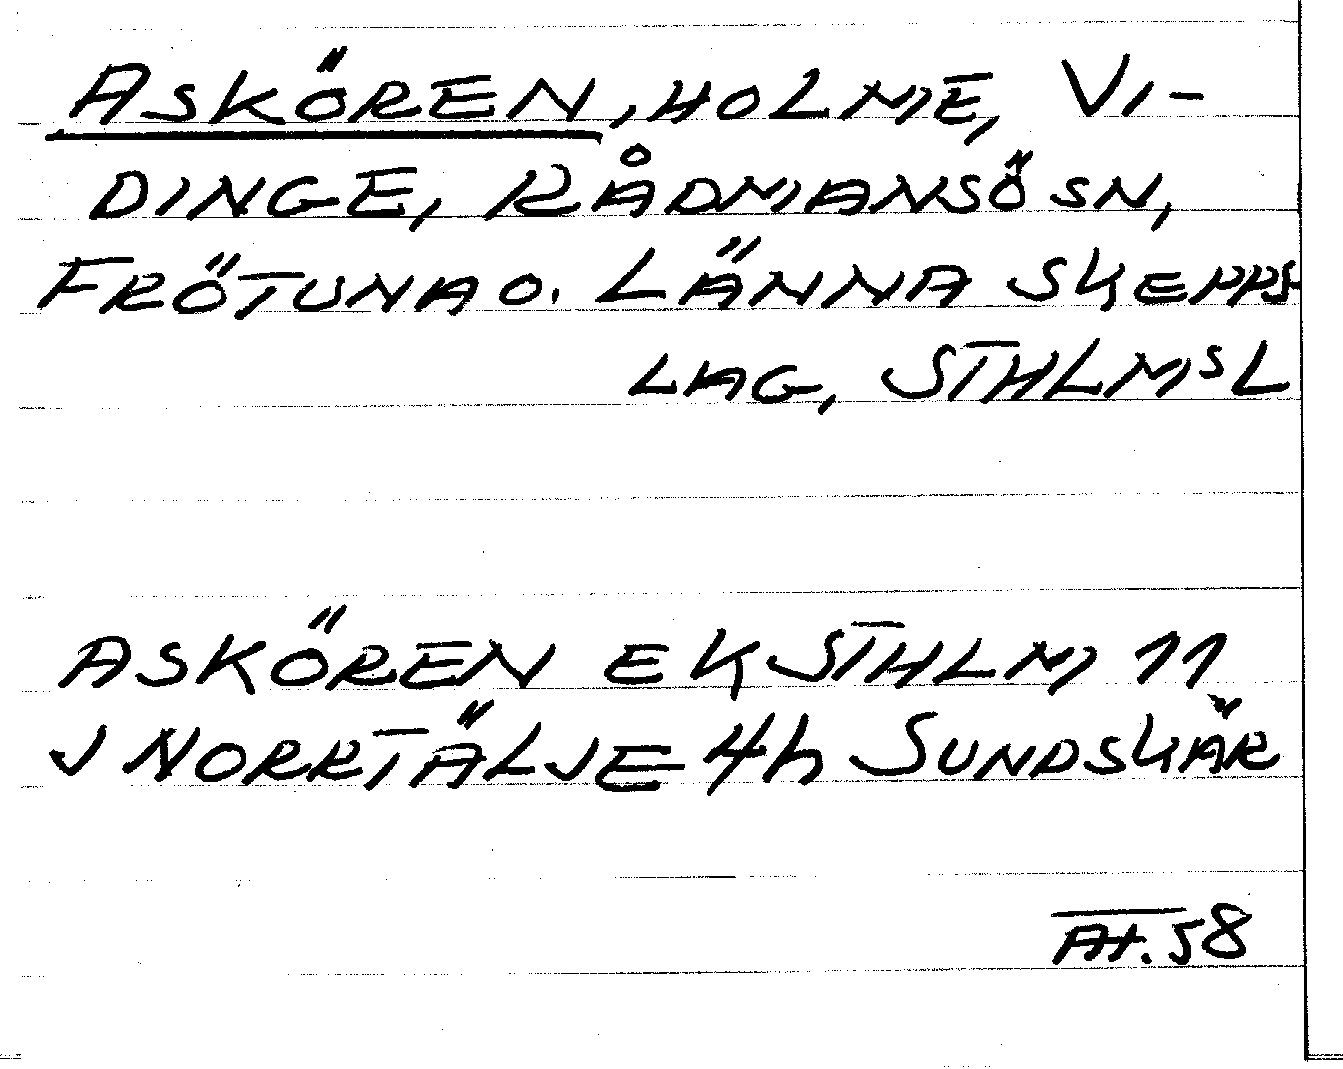 ASKÖREN, HOLME, VI-
DINGE, RÅDMANSÖ SN,
FRÖTUNA O. LÄNNA SKEPPS
LAG, STHLMS L
ASKÖREN EK STHLM 11
J NORRTÄLJE 4h SUNDSKÄR
At. 58